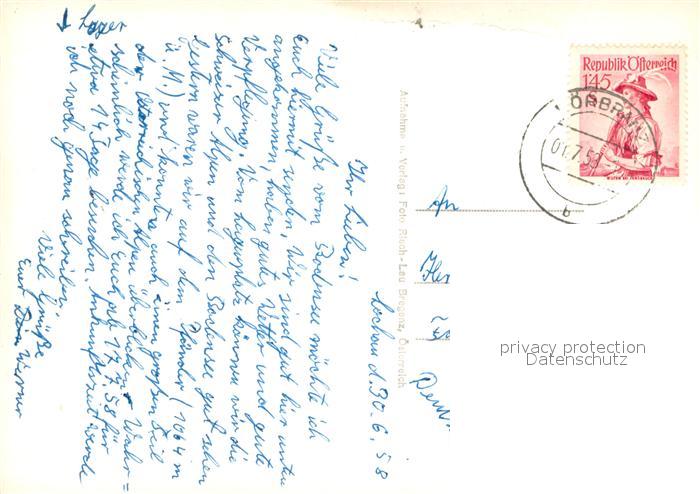 Lochau d. 30.6.58
Ihr Lieben!
Viele Grüße vom Bodensee möchte ich
Euch hiermit senden. Wir sind gut hier unten
angekommen, haben gutes Wetter und gute
Verpflegung. Vom Lagerplatz können wir die
Schweizer Alpen und den Bodensee gut sehen
Gestern waren wir auf dem Pfänder (1064 m
ü. M) und konnte auch einen großen Teil
der österreichischen Alpen überblicken. Wahr=
scheinlich werde ich Euch ab 17.7.58 für
etwa 14 Tage besuchen. Ankunftszeit werde
ich noch genau schreiben.
Viele Grüße
Euer Werner
↓ Lager
Aufnahme u. Verlag: Foto Risch-Lau Bregenz, Österreich
Republik Österreich
145
HÖRBRANZ
01.7.58
b
An
privacy protection
Datenschutz